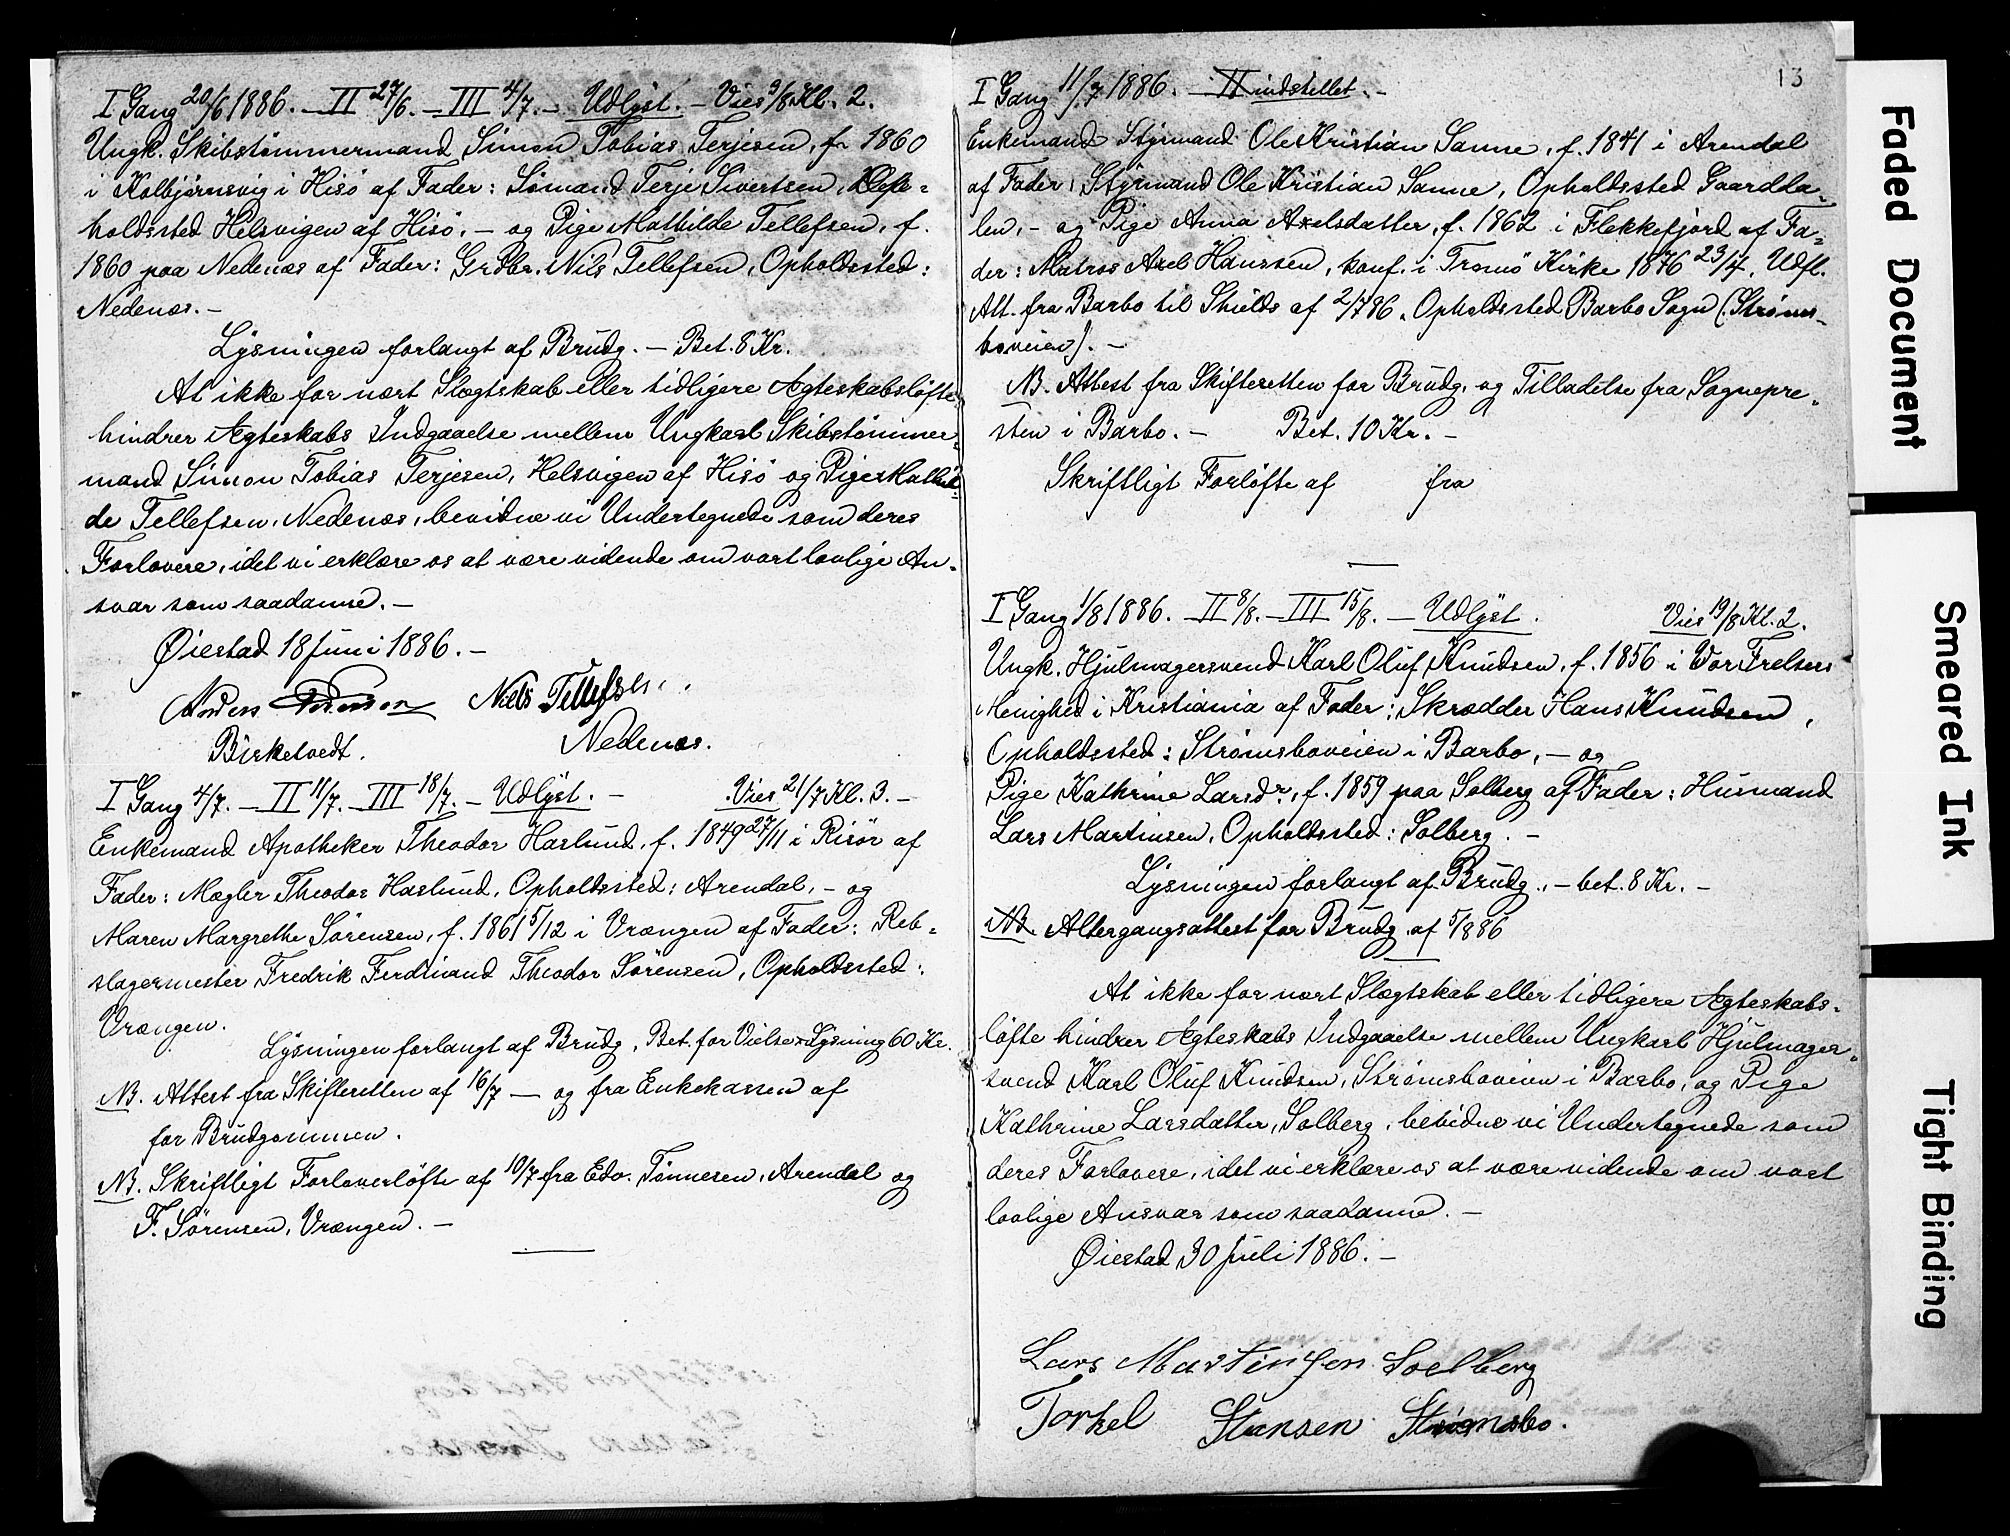 I Gang 20/6 1886. – II 27/6. – III 4/7. – Udlyst. – Vies 9/8 Kl. 2.
Ungk. Skibstømmermand Simon Tobias Terjesen, f. 1860
i Kolbjørnsvig i Hisö af Fader: Sømand Terje Sivertsen, Op-
holdssted Helsvigen af Hisö, – og Pige Mathilde Tellefsen, f.
1860 paa Nedenæs af Fader: Grdbr. Nils Tellefsen, Opholdssted:
Nedenæs. –
Lysningen forlangt af Brudg. – Bet. 8 Kr.
At ikke for nært Slægtskab eller tidligere Ægteskabsløfte
hindrer Ægteskabs Indgaaelse mellem Ungkarl Skibstømmer-
mand Simon Tobias Terjesen, Helsvigen af Hisö og Pige Mathil-
de Tellefsen, Nedenæs, bevidne vi Undertegnede som deres
Forlovere, idet vi erklære os at være vidende om vort lovlige An-
svar som saadanne. –
Øiestad 18 Juni 1886. –
Anders Niels Tellefsen
Birketvedt. Nedenæs.
I Gang 4/7. – II 11/7. – III 18/7. – Udlyst. – Vies 21/7 Kl. 3. –
Enkemand Apotheker Theodor Haslund, f. 1849 27/11 i Risör af
Fader: Mægler Theodor Haslund, Opholdssted: Arendal, – og
Maren Margrethe Sörensen, f. 1861 5/12 i Vrængen af Fader: Reb-
slagermester Fredrik Ferdinand Theodor Sörensen, Opholdssted:
Vrængen.
Lysningen forlangt af Brudg. Bet. for Vielse & Lysning 60 Kr.
NB. Attest fra Skifteretten af 16/7 – og fra Enkekassen af
for Brudgommen.
NB. Skriftligt Forloverløfte af 10/7 fra Edv. Tönnesen, Arendal og
F. Sörensen, Vrængen. –
13
I Gang 11/7 1886. – II indstillet. –
Enkemand Styrmand Ole Kristian Sanne, f. 1841 i Arendal
af Fader: Styrmand Ole Kristian Sanne, Opholdssted Gaardda-
len, – og Pige Anna Axelsdatter, f. 1862 i Flekkefjord af Fa-
der: Matros Axel Hanssen, konf. i Tromö Kirke 1876 23/4. Udfl.
Att. fra Barbo til Shields af 2/7 86. Opholdssted Barbo Sogn (Strøms-
boveien). –
NB. Attest fra Skifteretten for Brudg. og Tilladelse fra Sognepre-
sten i Barbo. – Bet. 10 Kr. –
Skriftligt Forløfte af fra
I Gang 1/8 1886. – II 8/8. – III 15/8. – Udlyst. Vies 19/8 Kl. 2.
Ungk. Hjulmagersvend Karl Oluf Knudsen, f. 1856 i Vor Frelsers
Menighed i Kristiania af Fader: Skrædder Hans Knudsen,
Opholdssted: Strømsboveien i Barbo, – og
Pige Kathrine Larsdr., f. 1859 paa Solberg af Fader: Husmand
Lars Martinsen, Opholdssted: Solberg. –
Lysningen forlangt af Brudg., – bet. 8 Kr. –
NB. Altergangsattest for Brudg. af 5/8 86
At ikke for nært Slægtskab eller tidligere Ægteskabs-
løfte hindrer Ægteskabs Indgaaelse mellem Ungkarl Hjulmager-
svend Karl Oluf Knudsen, Strømsboveien i Barbo, og Pige
Kathrine Larsdatter, Solberg, bevidne vi Undertegnede som
deres Forlovere, idet vi erklære os at være vidende om vort
lovlige Ansvar som saadanne. –
Øiestad 30 Juli 1886. –
Lars Martinsen Soelberg
Torkel Hansen Strømsbo.
Faded Document
Smeared Ink
Tight Binding